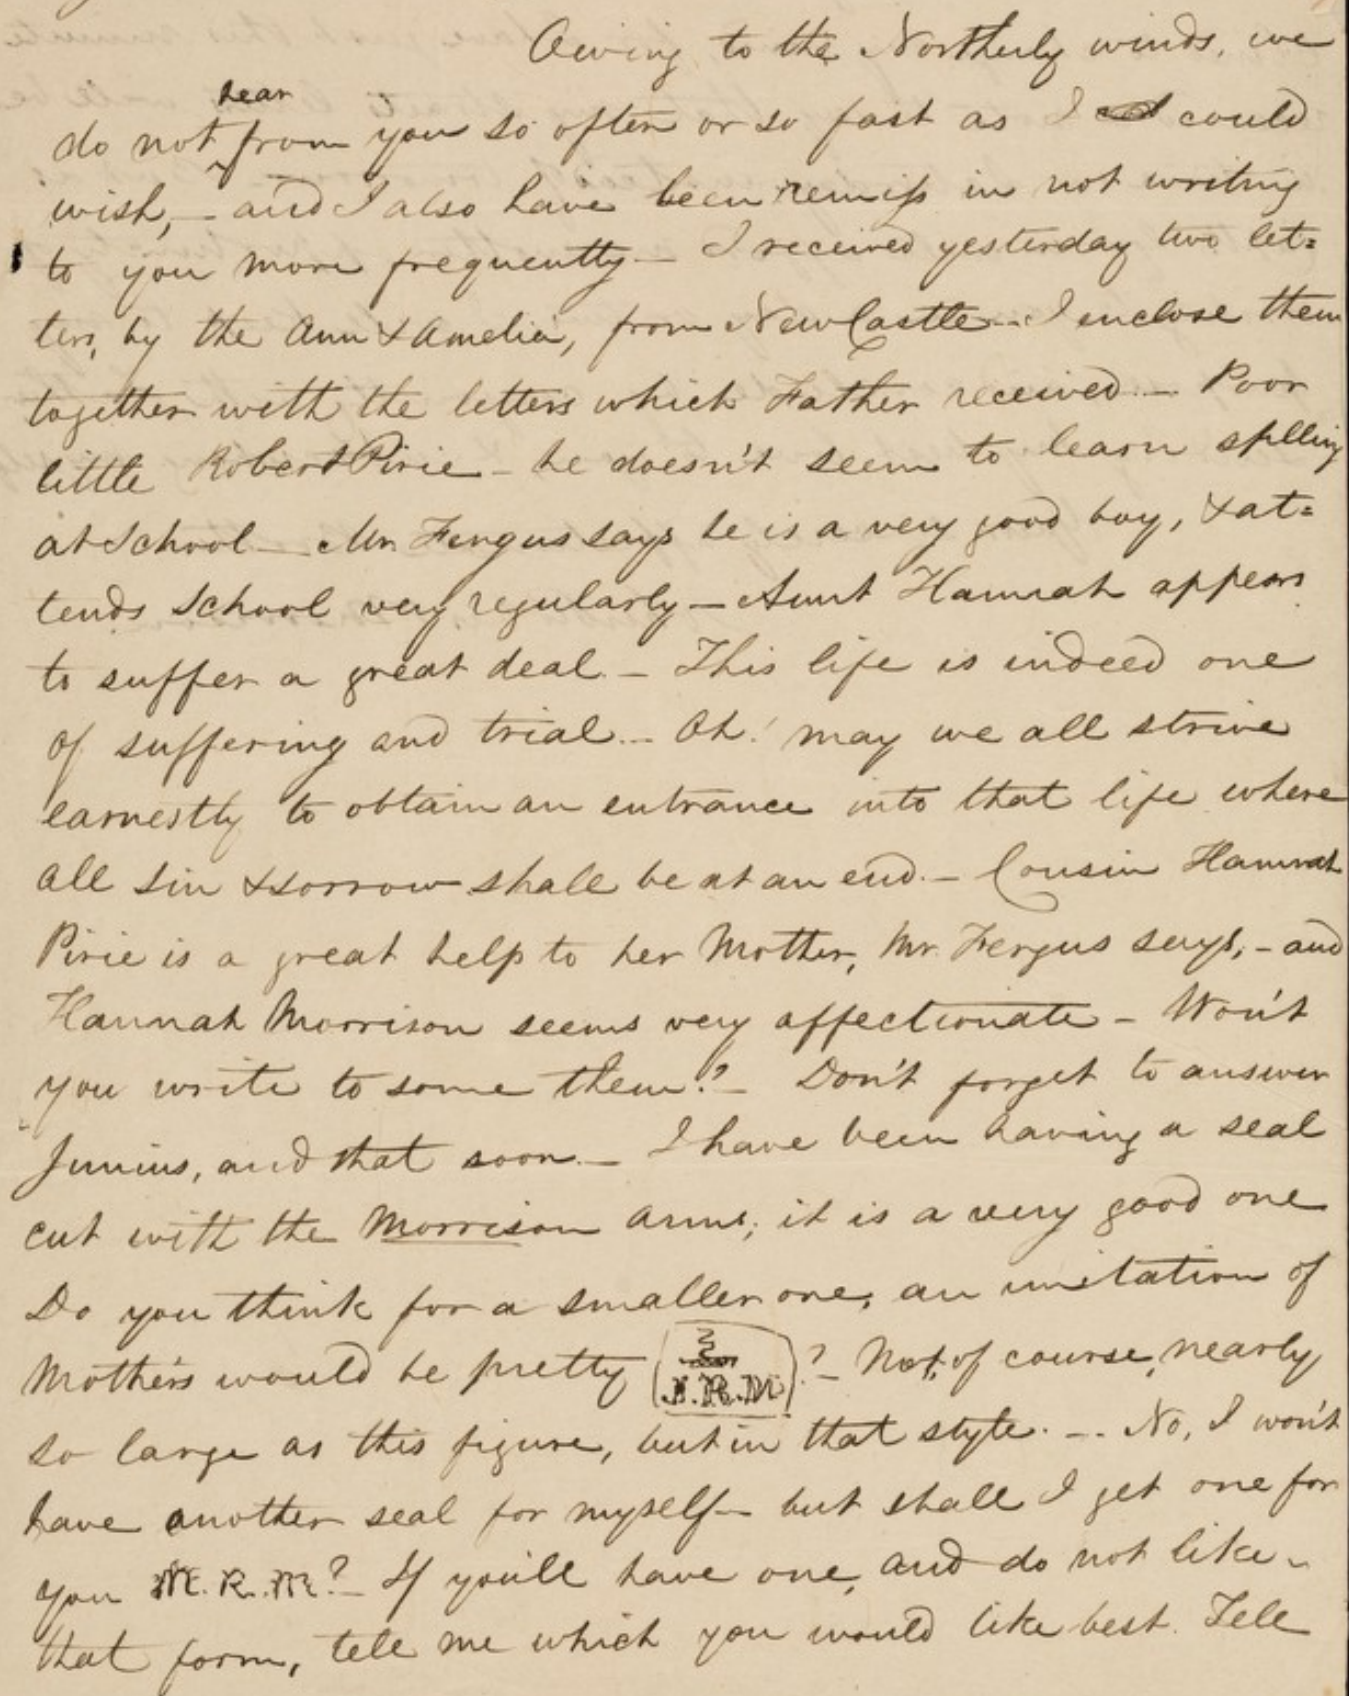 Owing to the Northerly winds, we
do not hear from you so often or so fast as I could
wish, - and I also have been remiss in not writing
to you more frequently - I received yesterday two let=
ters, by the Ann & Amelia, from NewCastle - I enclose them
together with the letters which Father received. - Poor
little Robert Pirie - he doesn't seem to learn splling
at School - Mr. Fergus says he is a very good boy, & at=
tends School very regularly - Aunt Hannah appears
to suffer a great deal. - This life is indeed one
of suffering and trial. - Oh! may we all strive
earnestly to obtain an entrance into that life where
all sin & sorrow shall be at an end. - Cousin Hannah
Pirie is a great help to her Mother, Mr. Fergus says, - and
Hannah Morrison seems very affectionate - Won't
you write to some them? - Don't forget to answer
Junius, and that soon. - I have been having a seal
cut with the Morrison arms; it is a very good one
Do you think for a smaller one, an imitation of
Mother's would be pretty J.R.M. ? - Not, of course, nearly
so large as this figure, but in that style. - No, I won't
have another seal for myself - but shall I get one for
you N.R.M.? - If you'll have one, and do not like -
that form, tell me which you would like best. Tell